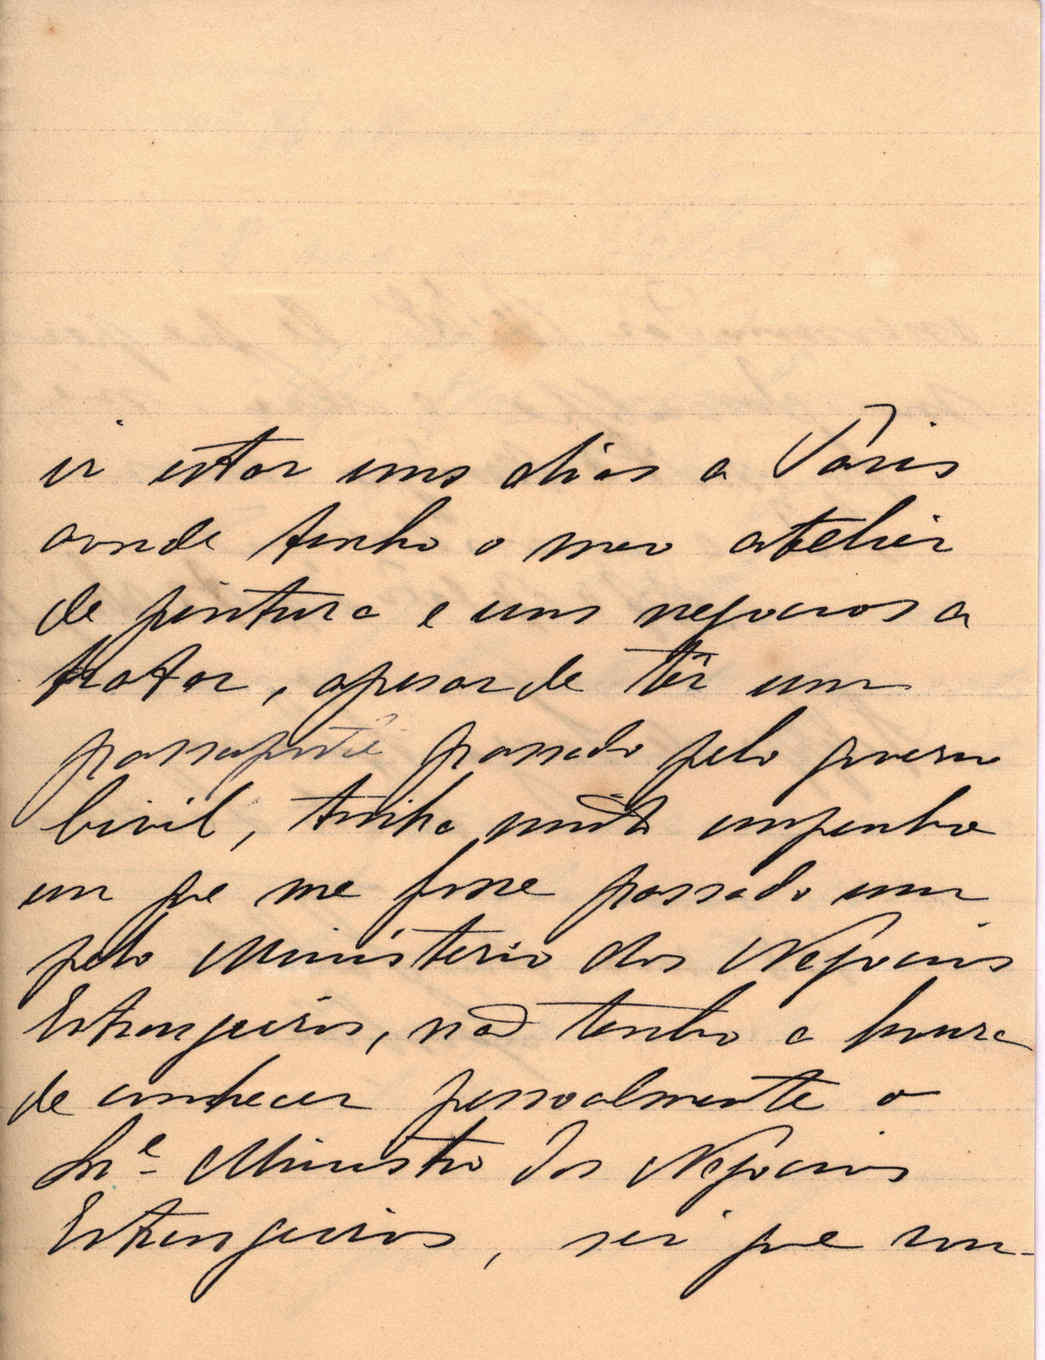 ir estar uns dias a Pâris
aonde tenho o meu atelier
de pintura e uns negocios a
tratar, apesar de têr um
passaporte passado pelo governo
Civil, tinha muito empenho
em que me fosse passado um
pelo Ministerio dos Negocios
Estrangeiros, não tenho a honra
de conhecer pessoalmente o
Snr. Ministro dos Negocios
Estrangeiros, sei que